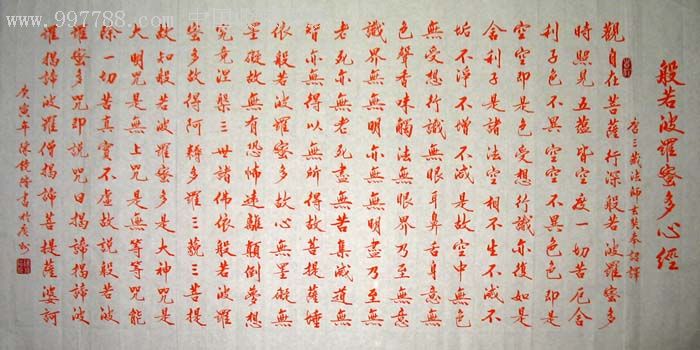 般若波羅蜜多心經
唐三藏法師玄奘奉詔譯
觀自在菩薩行深般若波羅蜜多
時照見五蘊皆空度一切苦厄舍
利子色不異空空不異色色即是
空空即是色受想行識亦復如是
舍利子是諸法空相不生不滅不
垢不淨不增不減是故空中無色
無受想行識無眼耳鼻舌身意無
色聲香味觸法無眼界乃至無意
識界無無明亦無無明盡乃至無
老死亦無老死盡無苦集滅道無
智亦無得以無所得故菩提薩埵
依般若波羅蜜多故心無罣礙無
罣礙故無有恐怖遠離顛倒夢想
究竟涅槃三世諸佛依般若波羅
蜜多故得阿耨多羅三藐三菩提
故知般若波羅蜜多是大神咒是
大明咒是無上咒是無等等咒能
除一切苦真實不虛故說般若波
羅蜜多咒即說咒曰揭諦揭諦波
羅揭諦波羅僧揭諦菩提薩婆訶
庚寅年陳鏡書於
www.997788.com